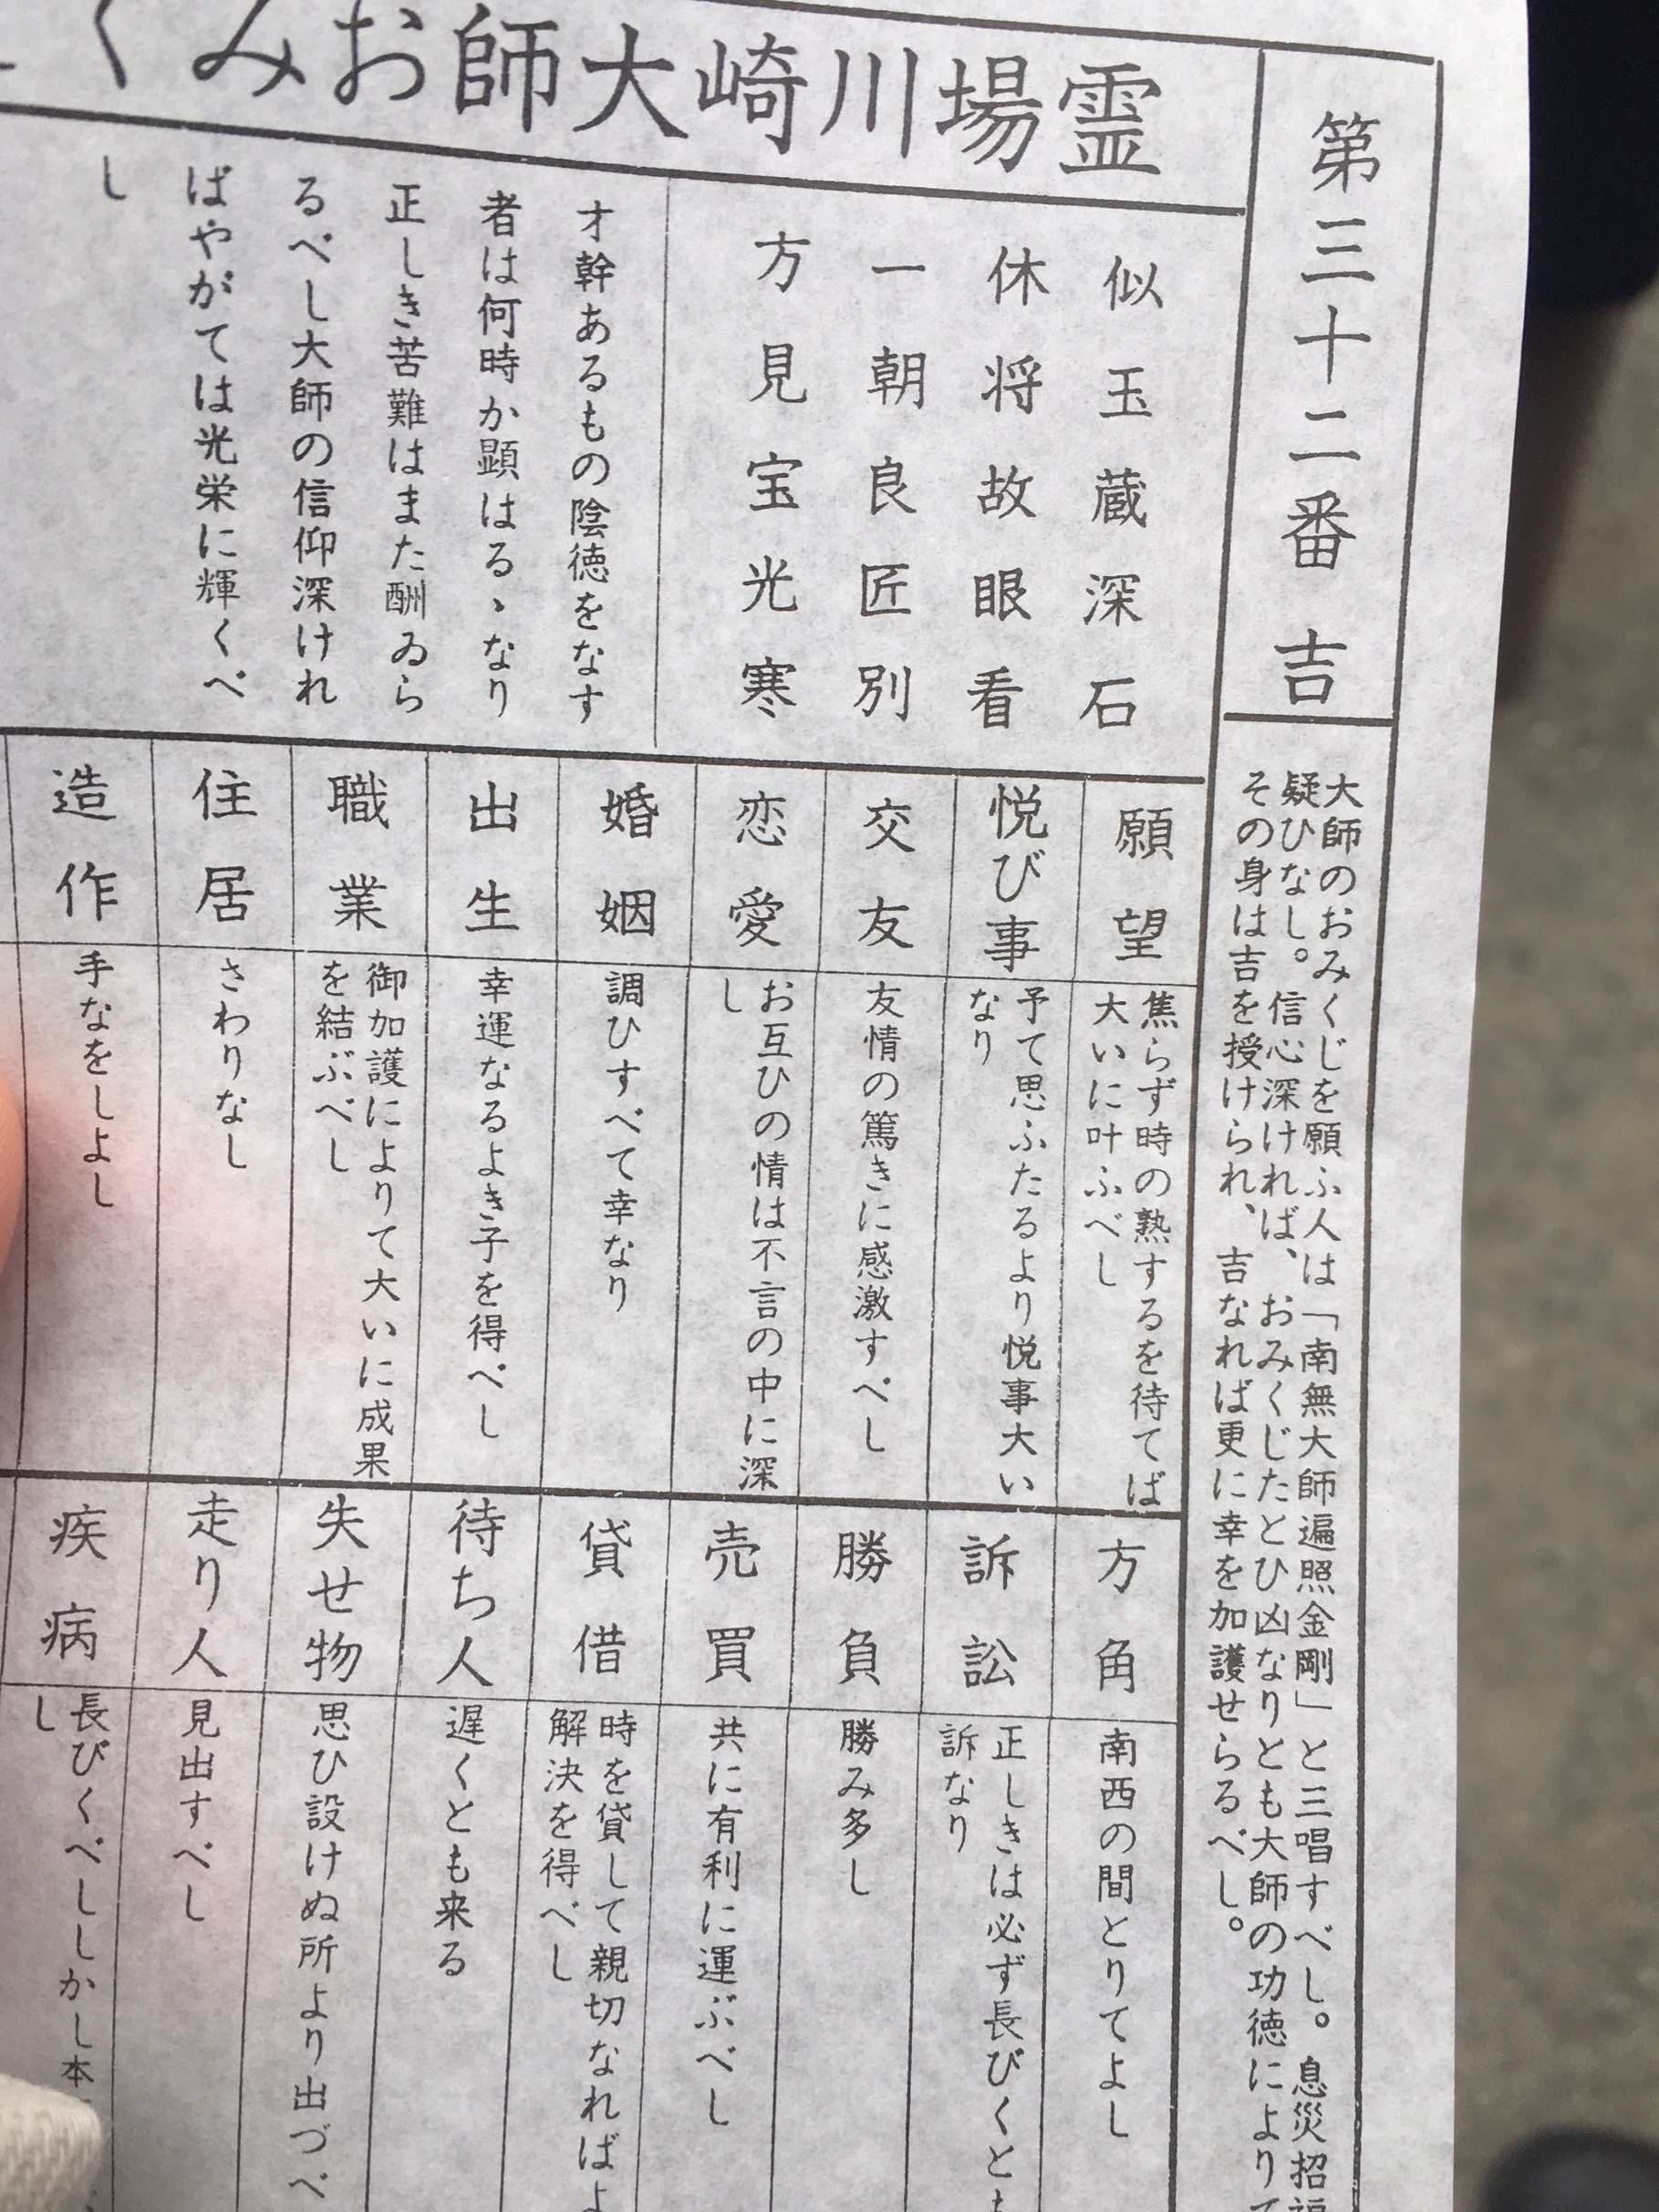 第三十二番 吉
大師のおみくじを願ふ人は「南無大師遍照金剛」と三唱すべし。息災招福
疑ひなし。信心深ければ、おみくじたとひ凶なりとも大師の功徳によりて
その身は吉を授けられ、吉なれば更に幸を加護せらるべし。
霊場川崎大師おみく
似玉蔵深石
休将故眼看
一朝良匠別
方見宝光寒
才幹あるもの陰徳をなす
者は何時か顕はるゝなり
正しき苦難はまた酬ゐら
るべし大師の信仰深けれ
ばやがては光栄に輝くべ
し
願望
焦らず時の熟するを待てば
大いに叶ふべし
悦び事
予て思ふたるより悦事大い
なり
交友
友情の篤きに感激すべし
恋愛
お互ひの情は不言の中に深
し
婚姻
調ひすべて幸なり
出生
幸運なるよき子を得べし
職業
御加護によりて大いに成果
を結ぶべし
住居
さわりなし
造作
手なをしよし
方角
南西の間とりてよし
訴訟
正しきは必ず長びくとも
訴なり
勝負
勝み多し
売買
共に有利に運ぶべし
貸借
時を貸して親切なればよ
解決を得べし
待ち人
遅くとも来る
失せ物
思ひ設けぬ所より出づべ
走り人
見出すべし
疾病
長びくべししかし本
し